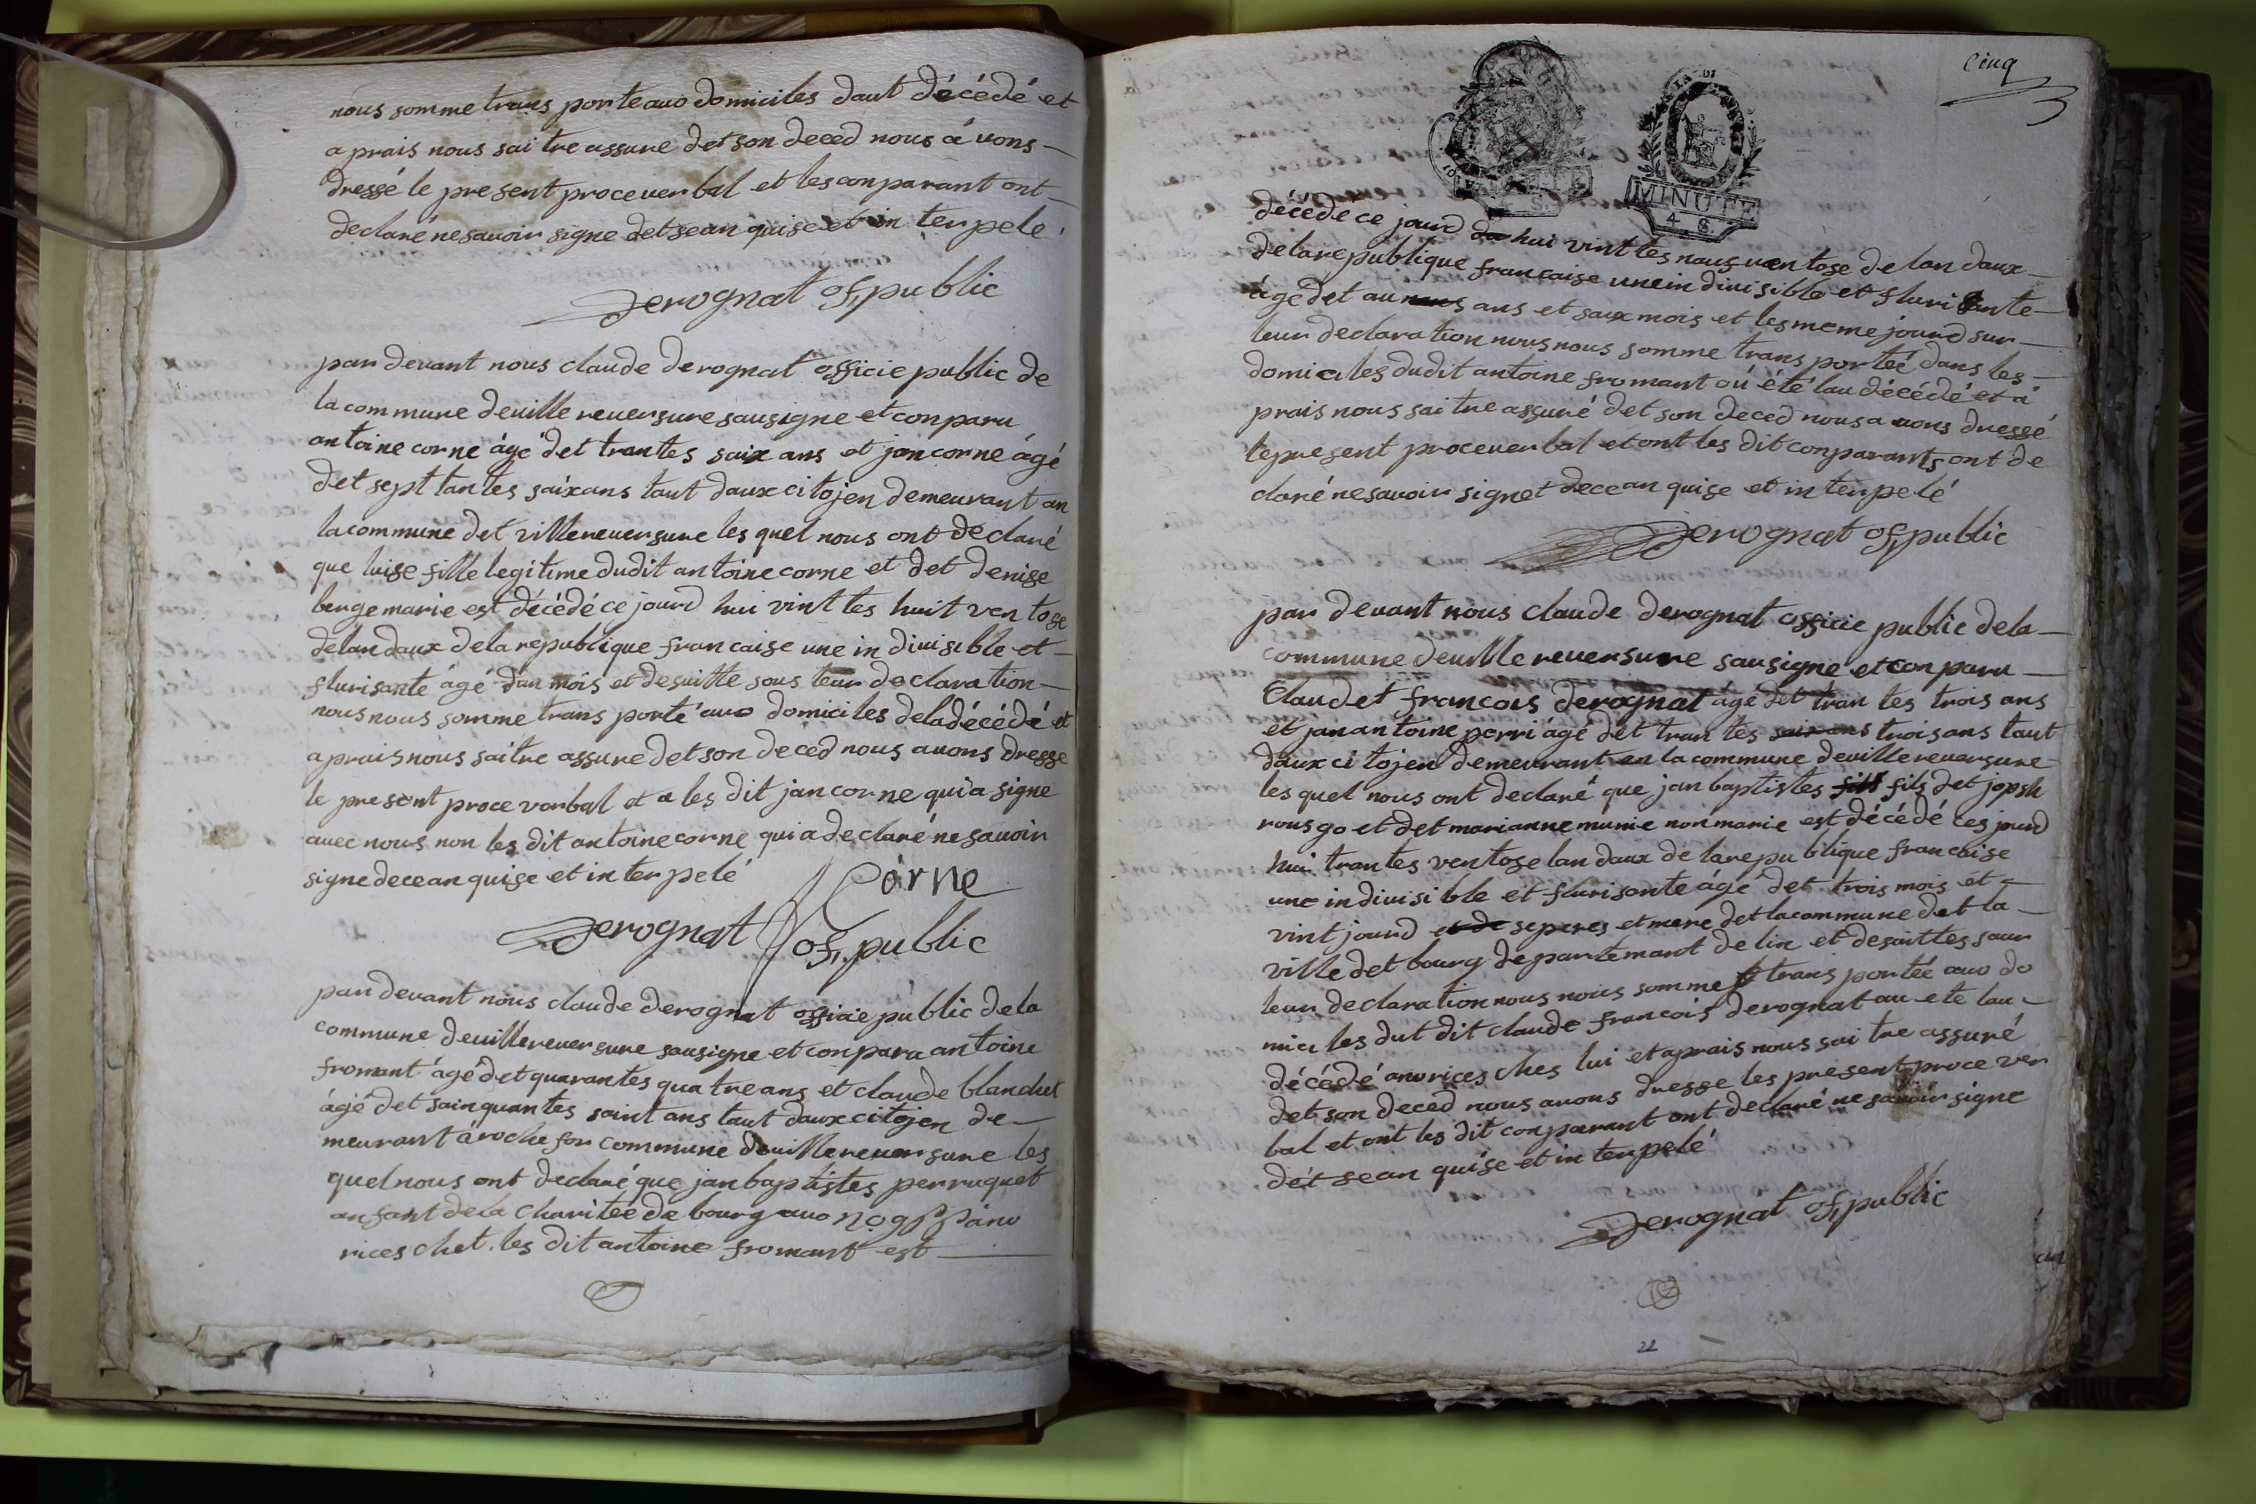 nous somme trans porte auo domiciles daut décédé et
a prais nous sai tre assure det son deced nous à vons
dressé le present proceverbal et les conparant ont
declaré ne savoir signe det se an quise et in terpele
Derognat of, public
par devant nous claude derognat officie public de
la commune de ville reversure sausigne et conparu
antoine corne âgé det trantes saix ans et jan corne âgé
det sept tantes saix ans taut daux citojen demeurant an
la commune det villereversure les quel nous ont declaré
que luise fille legitime dudit antoine corne et det denise
berge marie est décédé ce jourd hui vint tes huit ven tose
de lan daux de la republique francaise une in divisible et
flurisante âgé dan mois et desuitte sous leur declaration
nous nous somme trans porté auo domiciles de la décédé et
a prais nous saitre assure det son deced nous avons dresse
le present proce verbal et a les dit jan corne qui a signe
avec nous non les dit antoine corne qui a declaré ne savoir
signe dece an quise et in ter pelé
Corne
Derognat of, public
par devant nous claude derognat officie public de la
commune de villereversure sausigne et conparu antoine
fromant âgé det quarantes quatre ans et claude blanchet
âgé det sainquantes saint ans taut daux citojen de
meurant à roche for commune de villereversure les
quel nous ont declaré que jan baptistes perruquet
anfant de la charitée de bourg auo no
rices chet les dit antoine fromant est
cinq
MINUTE
4. S.
décéde ce jourd hui vint tes nauf ven tose de lan daux
de la republique francaise une in divisible et fluri sante
âgé det au ans et saux mois et les meme jourd sur
leur declaration nous nous somme trans porteé dans les
domiciles dudit antoine fromant où été lau décédé et a
prais nous sai tre assuré det son deced nous a vons dressé
le present proceverbal et ont les dit conparants ont de
claré ne savoir signet dece an quise et in terpelé
Derognat of, public
par devant nous claude derognat officie public de la
commune de ville reversure sausigne et conparu
Claudet francois derognat âgé det tran tes trois ans
et jan antoine perri âgé det tran tes saix ans trois ans taut
daux citojen demeurant en la commune de villereversure
les quel nous ont declaré que jan baptistes fils fils det jopsh
rousgo et det marianne munie non marie est décédé ces jourd
hui trantes ventose lan daux de la republique francaise
une in divisible et flurisante âgé det trois mois et
vint jourd et de se peres et mere det la commune det la
ville det bourg departemant de lin et desaittes saur
leur declaration nous nous somme trans portée auo do
miciles dut dit claude francois derognat au ete lau
décédé anorices ches lui et aprais nous sai tre assuré
det son deced nous avons dresse les present proce ver
bal et ont les dit conparant ont declaré ne savoir signe
dét se an quise et in terpelé
Derognat of, public
22